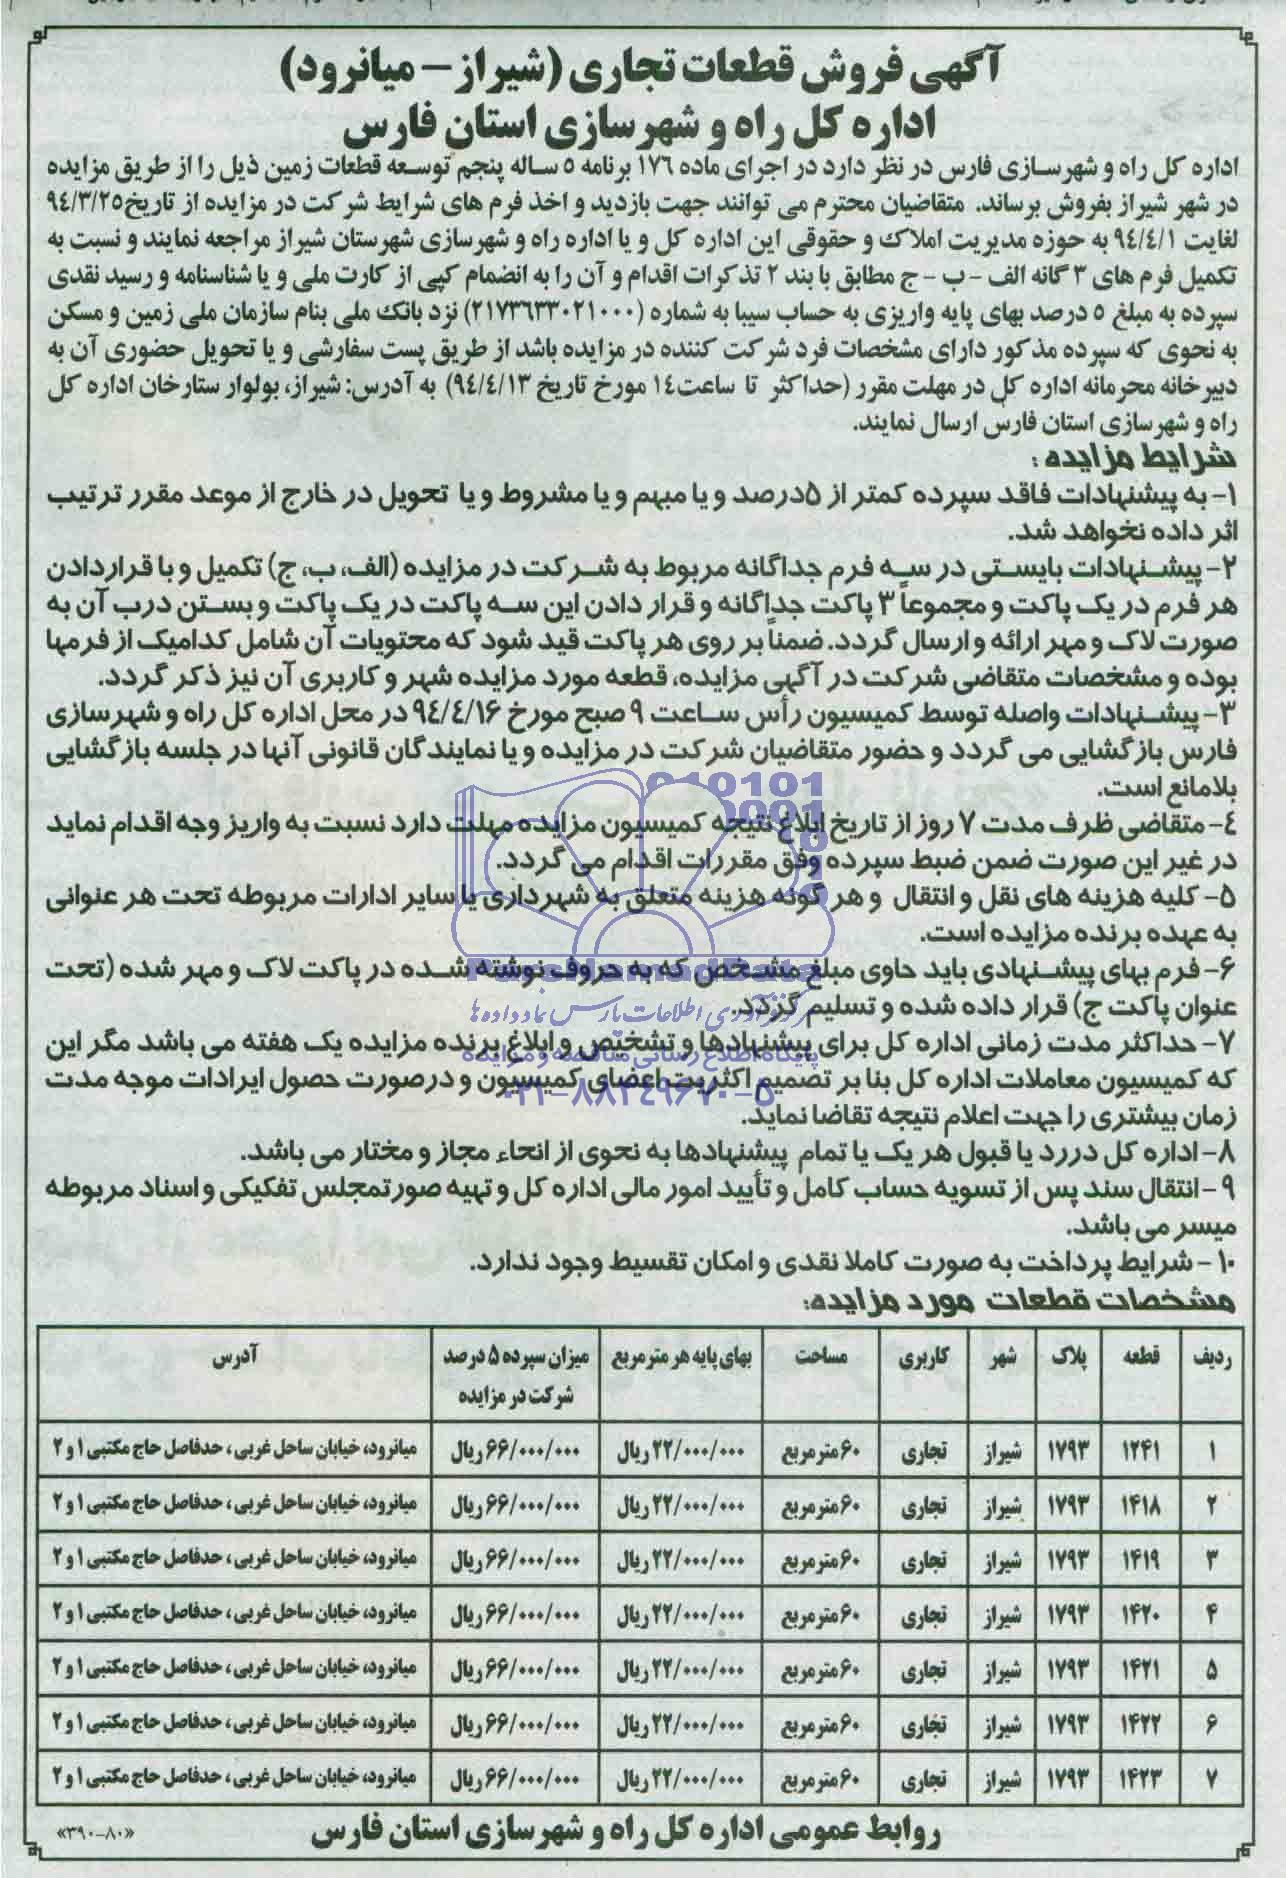 آگهی فروش قطعات تجاری (شیراز – میانرود)
اداره کل راه و شهرسازی استان فارس
اداره کل راه و شهرسازی فارس در نظر دارد در اجرای ماده ۱۷۶ برنامه ۵ ساله پنجم توسعه قطعات زمین ذیل را از طریق مزایده
در شهر شیراز بفروش برساند. متقاضیان محترم می توانند جهت بازدید و اخذ فرم های شرایط شرکت در مزایده از تاریخ۹٤/۳/۲۵
لغایت ۹٤/٤/۱ به حوزه مدیریت املاک و حقوقی این اداره کل و یا اداره راه و شهرسازی شهرستان شیراز مراجعه نمایند و نسبت به
تکمیل فرم های ۳ گانه الف - ب - ج مطابق با بند ۲ تذکرات اقدام و آن را به انضمام کپی از کارت ملی و یا شناسنامه و رسید نقدی
سپرده به مبلغ ۵ درصد بهای پایه واریزی به حساب سیبا به شماره (۲۱۷۳۶۳۳۰۲۱۰۰۰) نزد بانک ملی بنام سازمان ملی زمین و مسکن
به نحوی که سپرده مذکور دارای مشخصات فرد شرکت کننده در مزایده باشد از طریق پست سفارشی و یا تحویل حضوری آن به
دبیرخانه محرمانه اداره کل در مهلت مقرر (حداکثر تا ساعت۱٤ مورخ تاریخ ۹٤/٤/۱۳) به آدرس: شیراز، بولوار ستارخان اداره کل
راه و شهرسازی استان فارس ارسال نمایند.
شرایط مزایده :
۱- به پیشنهادات فاقد سپرده کمتر از ۵درصد و یا مبهم و یا مشروط و یا تحویل در خارج از موعد مقرر ترتیب
اثر داده نخواهد شد.
۲- پیشنهادات بایستی در سه فرم جداگانه مربوط به شرکت در مزایده (الف، ب، ج) تکمیل و با قراردادن
هر فرم در یک پاکت و مجموعاً ۳ پاکت جداگانه و قرار دادن این سه پاکت در یک پاکت و بستن درب آن به
صورت لاک و مهر ارائه و ارسال گردد. ضمناً بر روی هر پاکت قید شود که محتویات آن شامل کدامیک از فرمها
بوده و مشخصات متقاضی شرکت در آگهی مزایده، قطعه مورد مزایده شهر و کاربری آن نیز ذکر گردد.
۳- پیشنهادات واصله توسط کمیسیون رأس ساعت ۹ صبح مورخ ۹٤/٤/۱۶ در محل اداره کل راه و شهرسازی
فارس بازگشایی می گردد و حضور متقاضیان شرکت در مزایده و یا نمایندگان قانونی آنها در جلسه بازگشایی
بلامانع است.
٤- متقاضی ظرف مدت ۷ روز از تاریخ ابلاغ نتیجه کمیسیون مزایده مهلت دارد نسبت به واریز وجه اقدام نماید
در غیر این صورت ضمن ضبط سپرده وفق مقررات اقدام می گردد.
۵- کلیه هزینه های نقل و انتقال و هر گونه هزینه متعلق به شهرداری یا سایر ادارات مربوطه تحت هر عنوانی
به عهده برنده مزایده است.
۶- فرم بهای پیشنهادی باید حاوی مبلغ مشخص که به حروف نوشته شده در پاکت لاک و مهر شده (تحت
عنوان پاکت ج) قرار داده شده و تسلیم گردد.
۷- حداکثر مدت زمانی اداره کل برای پیشنهادها و تشخیص و ابلاغ برنده مزایده یک هفته می باشد مگر این
که کمیسیون معاملات اداره کل بنا بر تصمیم اکثریت اعضای کمیسیون و درصورت حصول ایرادات موجه مدت
زمان بیشتری را جهت اعلام نتیجه تقاضا نماید.
۸- اداره کل دررد یا قبول هر یک یا تمام پیشنهادها به نحوی از انحاء مجاز و مختار می باشد.
۹- انتقال سند پس از تسویه حساب کامل و تأیید امور مالی اداره کل و تهیه صورتمجلس تفکیکی و اسناد مربوطه
میسر می باشد.
۱۰- شرایط پرداخت به صورت کاملا نقدی و امکان تقسیط وجود ندارد.
مشخصات قطعات مورد مزایده:
ردیف قطعه پلاک شهر کاربری مساحت بهای پایه هر مترمربع میزان سپرده ۵ درصد شرکت در مزایده آدرس
۱ ۱۲۴۱ ۱۷۹۳ شیراز تجاری ۶۰مترمربع ۲۲/۰۰۰/۰۰۰ ریال ۶۶/۰۰۰/۰۰۰ ریال میانرود، خیابان ساحل غربی، حدفاصل حاج مکتبی ۱ و ۲
۲ ۱۴۱۸ ۱۷۹۳ شیراز تجاری ۶۰مترمربع ۲۲/۰۰۰/۰۰۰ ریال ۶۶/۰۰۰/۰۰۰ ریال میانرود، خیابان ساحل غربی، حدفاصل حاج مکتبی ۱ و ۲
۳ ۱۴۱۹ ۱۷۹۳ شیراز تجاری ۶۰مترمربع ۲۲/۰۰۰/۰۰۰ ریال ۶۶/۰۰۰/۰۰۰ ریال میانرود، خیابان ساحل غربی، حدفاصل حاج مکتبی ۱ و ۲
۴ ۱۴۲۰ ۱۷۹۳ شیراز تجاری ۶۰مترمربع ۲۲/۰۰۰/۰۰۰ ریال ۶۶/۰۰۰/۰۰۰ ریال میانرود، خیابان ساحل غربی، حدفاصل حاج مکتبی ۱ و ۲
۵ ۱۴۲۱ ۱۷۹۳ شیراز تجاری ۶۰مترمربع ۲۲/۰۰۰/۰۰۰ ریال ۶۶/۰۰۰/۰۰۰ ریال میانرود، خیابان ساحل غربی، حدفاصل حاج مکتبی ۱ و ۲
۶ ۱۴۲۲ ۱۷۹۳ شیراز تجاری ۶۰مترمربع ۲۲/۰۰۰/۰۰۰ ریال ۶۶/۰۰۰/۰۰۰ ریال میانرود، خیابان ساحل غربی، حدفاصل حاج مکتبی ۱ و ۲
۷ ۱۴۲۳ ۱۷۹۳ شیراز تجاری ۶۰مترمربع ۲۲/۰۰۰/۰۰۰ ریال ۶۶/۰۰۰/۰۰۰ ریال میانرود، خیابان ساحل غربی، حدفاصل حاج مکتبی ۱ و ۲
روابط عمومی اداره کل راه و شهرسازی استان فارس
«۳۹۰-۸۰»
ParsNamadData
مرکز فرآوری اطلاعات پارس نماد داده ها
پایگاه اطلاع رسانی مناقصه و مزایده
۰۲۱-۸۸۳۴۹۶۷۰-۵